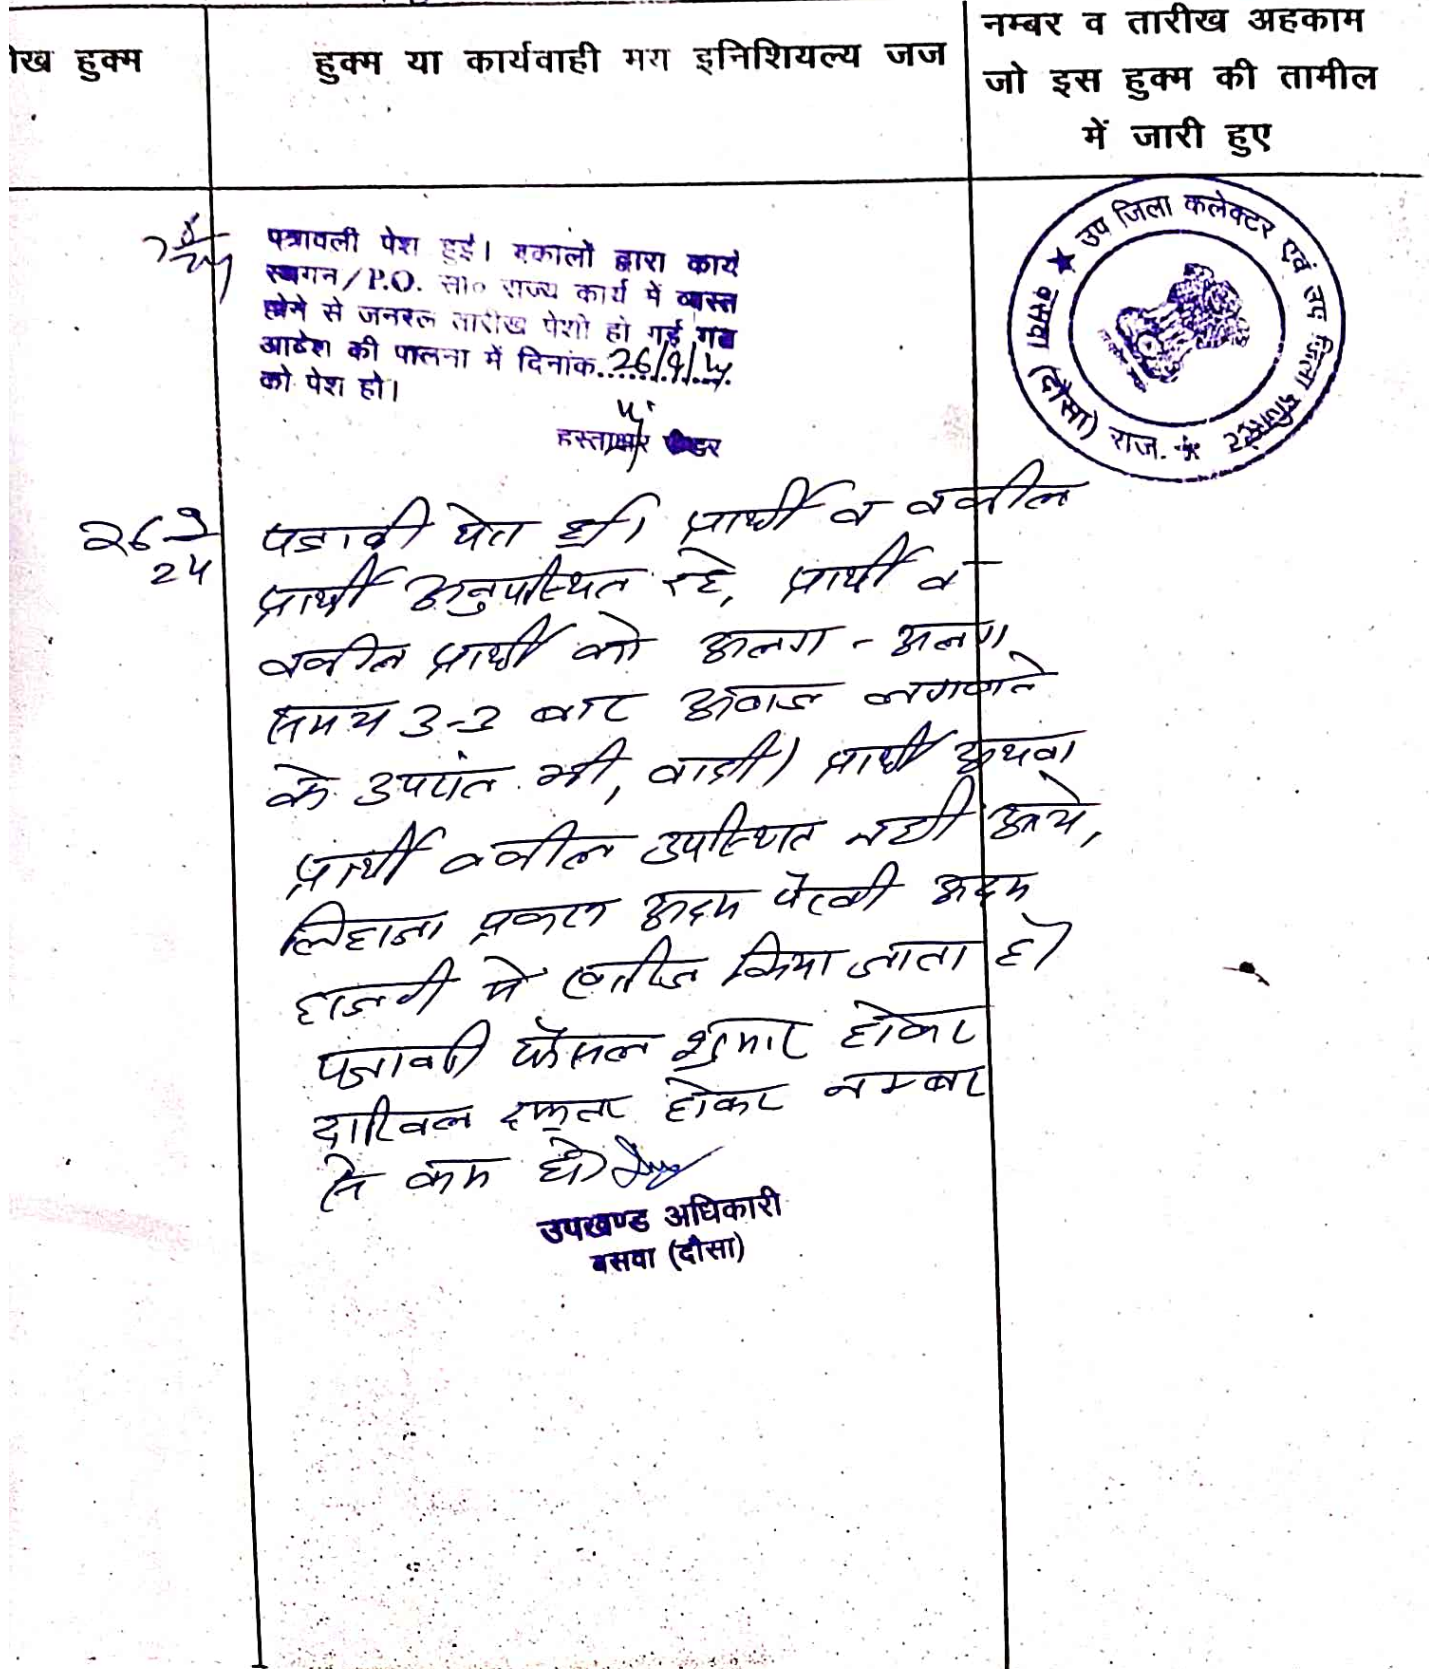 ेख हुक्म
हुक्म या कार्यवाही मय इनिशियल्य जज
नम्बर व तारीख अहकाम
जो इस हुक्म की तामील
में जारी हुए
पत्रावली पेश हुई। वकीलों द्वारा कार्य
स्थगन/P.O. सा० राज्य कार्य में व्यस्त
होने से जनरल तारीख पेशी हो गई गत
आदेश की पालना में दिनांक..26/9/24..
को पेश हो।
हस्ताक्षर रीडर
उप जिला कलेक्टर एवं उप जिला मजिस्ट्रेट
बसवा (दौसा) राज.
26 9/24
पत्रावली पेश हुई। प्रार्थी व वकील
प्रार्थी अनुपस्थित रहे, प्रार्थी व
वकील प्रार्थी को अलग - अलग
समय 3-3 बार आवाज लगवाने
के उपरांत भी, वादी/ प्रार्थी अथवा
प्रार्थी वकील उपस्थित नही आये,
लिहाजा प्रकरण अदम पैरवी अदम
हाजरी मे खारीज किया जाता है।
पत्रावली फैसल शुमार होकर
दाखिल दफ्तर होकर नम्बर
से कम हो।
उपखण्ड अधिकारी
बसवा (दौसा)